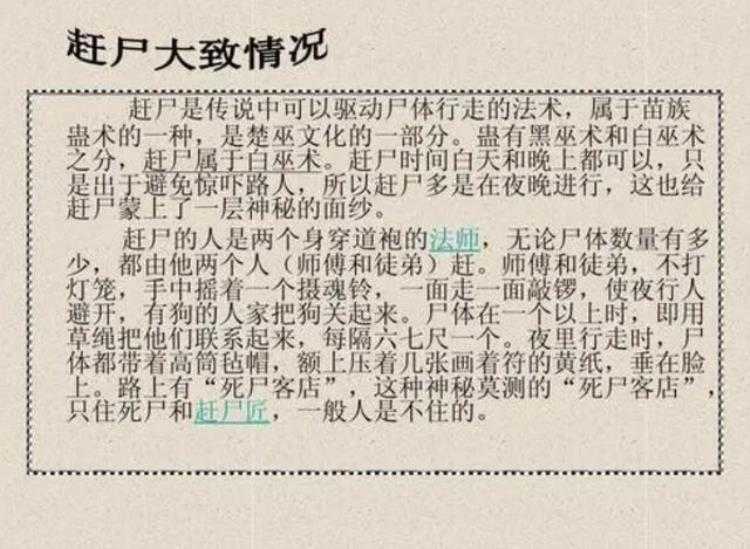 赶尸大致情况
赶尸是传说中可以驱动尸体行走的法术，属于苗族
蛊术的一种，是楚巫文化的一部分。蛊有黑巫术和白巫术
之分，赶尸属于白巫术。赶尸时间白天和晚上都可以，只
是出于避免惊吓路人，所以赶尸多是在夜晚进行，这也给
赶尸蒙上了一层神秘的面纱。
赶尸的人是两个身穿道袍的法师，无论尸体数量有多
少，都由他两个人（师傅和徒弟）赶。师傅和徒弟，不打
灯笼，手中摇着一个摄魂铃，一面走一面敲锣，使夜行人
避开，有狗的人家把狗关起来。尸体在一个以上时，即用
草绳把他们联系起来，每隔六七尺一个。夜里行走时，尸
体都带着高筒毡帽，额上压着几张画着符的黄纸，垂在脸
上。路上有“死尸客店”，这种神秘莫测的“死尸客店”，
只住死尸和赶尸匠，一般人是不住的。